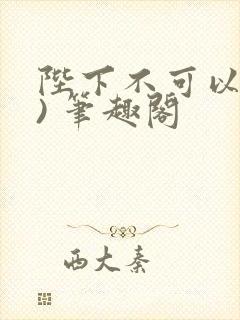 陛下不可以
)筆趣閣
西大秦